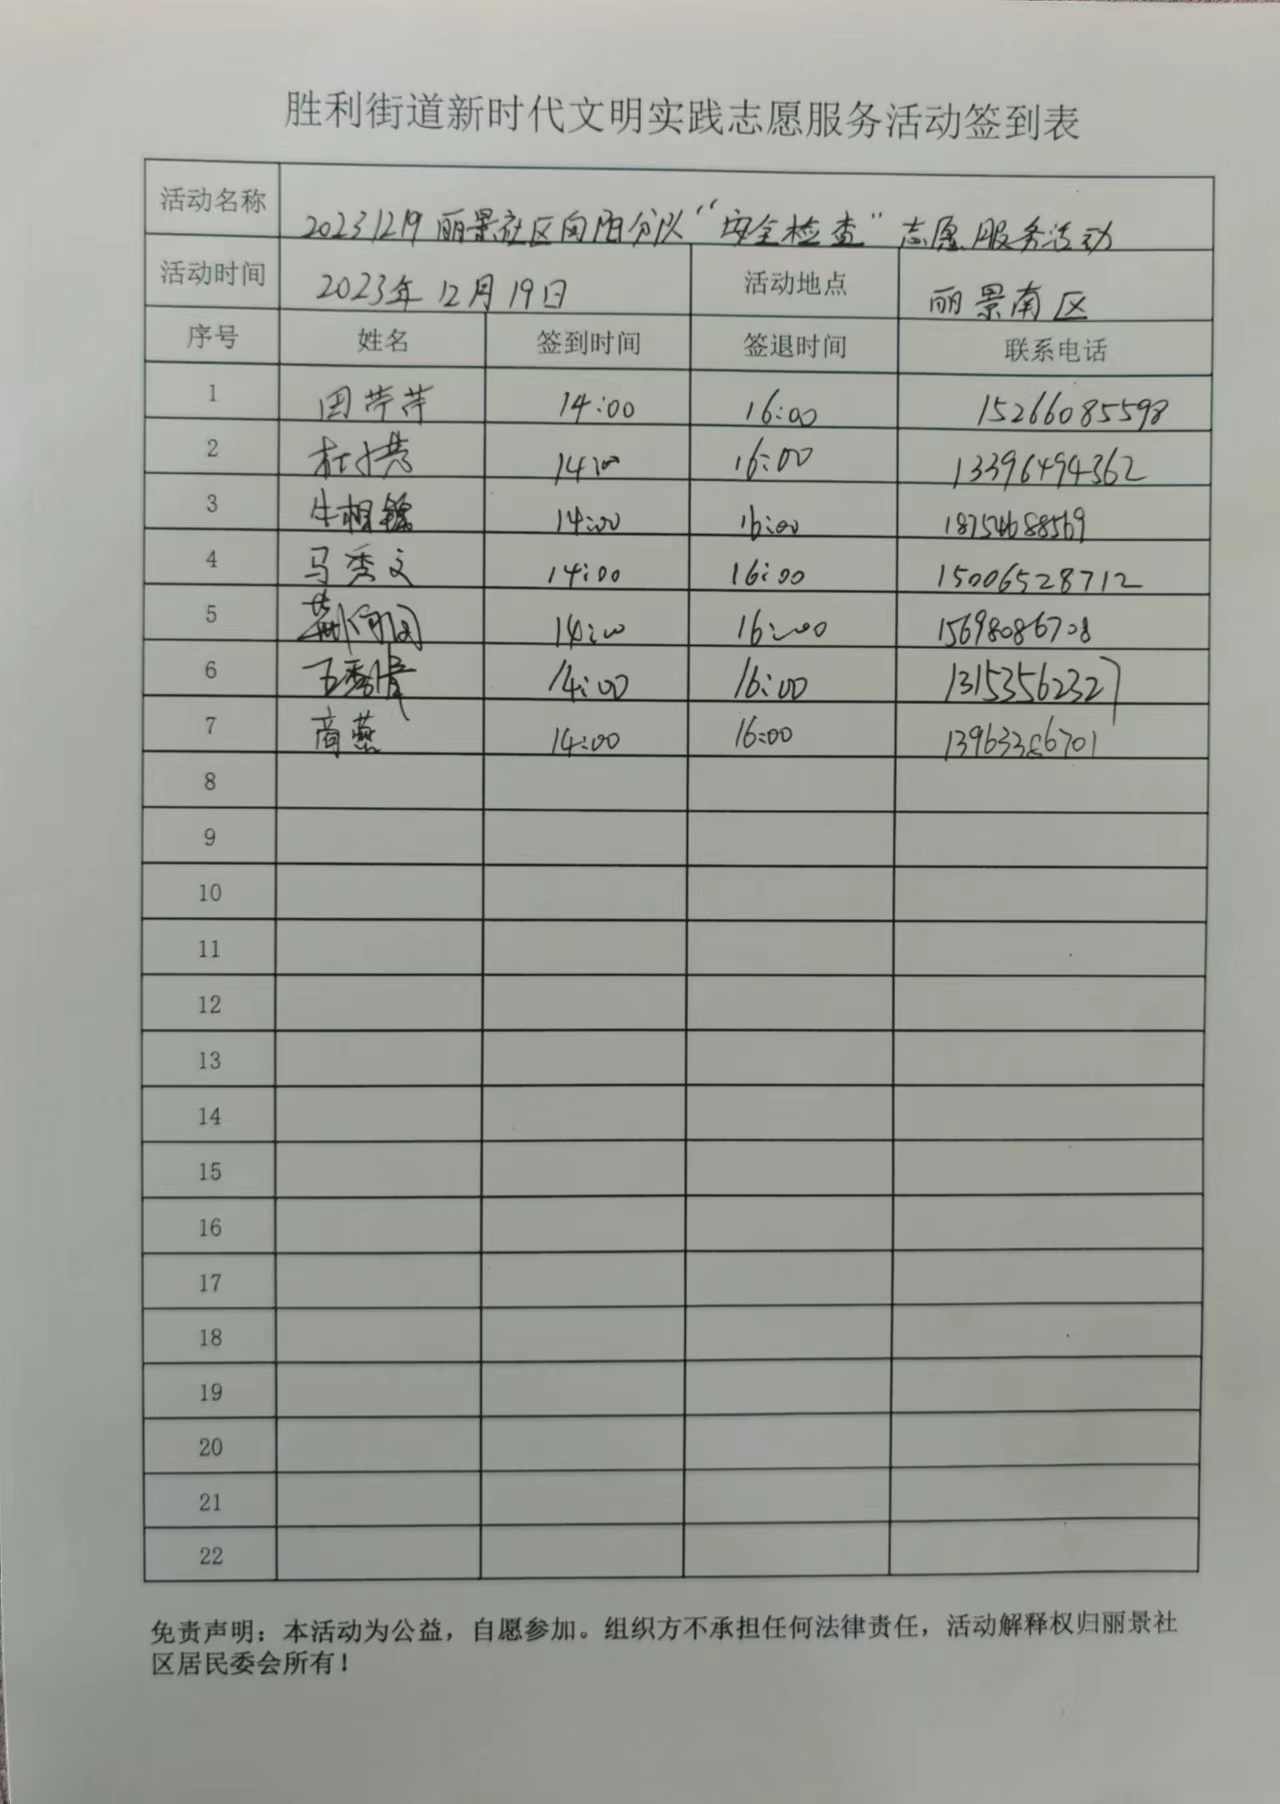 胜利街道新时代文明实践志愿服务活动签到表
活动名称 20231219丽景社区向阳分队“安全检查”志愿服务活动
活动时间 2023年12月19日 活动地点 丽景南区
序号 姓名 签到时间 签退时间 联系电话
1 田苹苹 14:00 16:00 15266085598
2 14:00 16:00 13396494362
3 牛相镕 14:00 16:00 18754688569
4 马秀文 14:00 16:00 15006528712
5 14:00 16:00 15698086708
6 14:00 16:00 13153562327
7 商燕 14:00 16:00 13963386701
8
9
10
11
12
13
14
15
16
17
18
19
20
21
22
免责声明：本活动为公益，自愿参加。组织方不承担任何法律责任，活动解释权归丽景社
区居民委会所有！